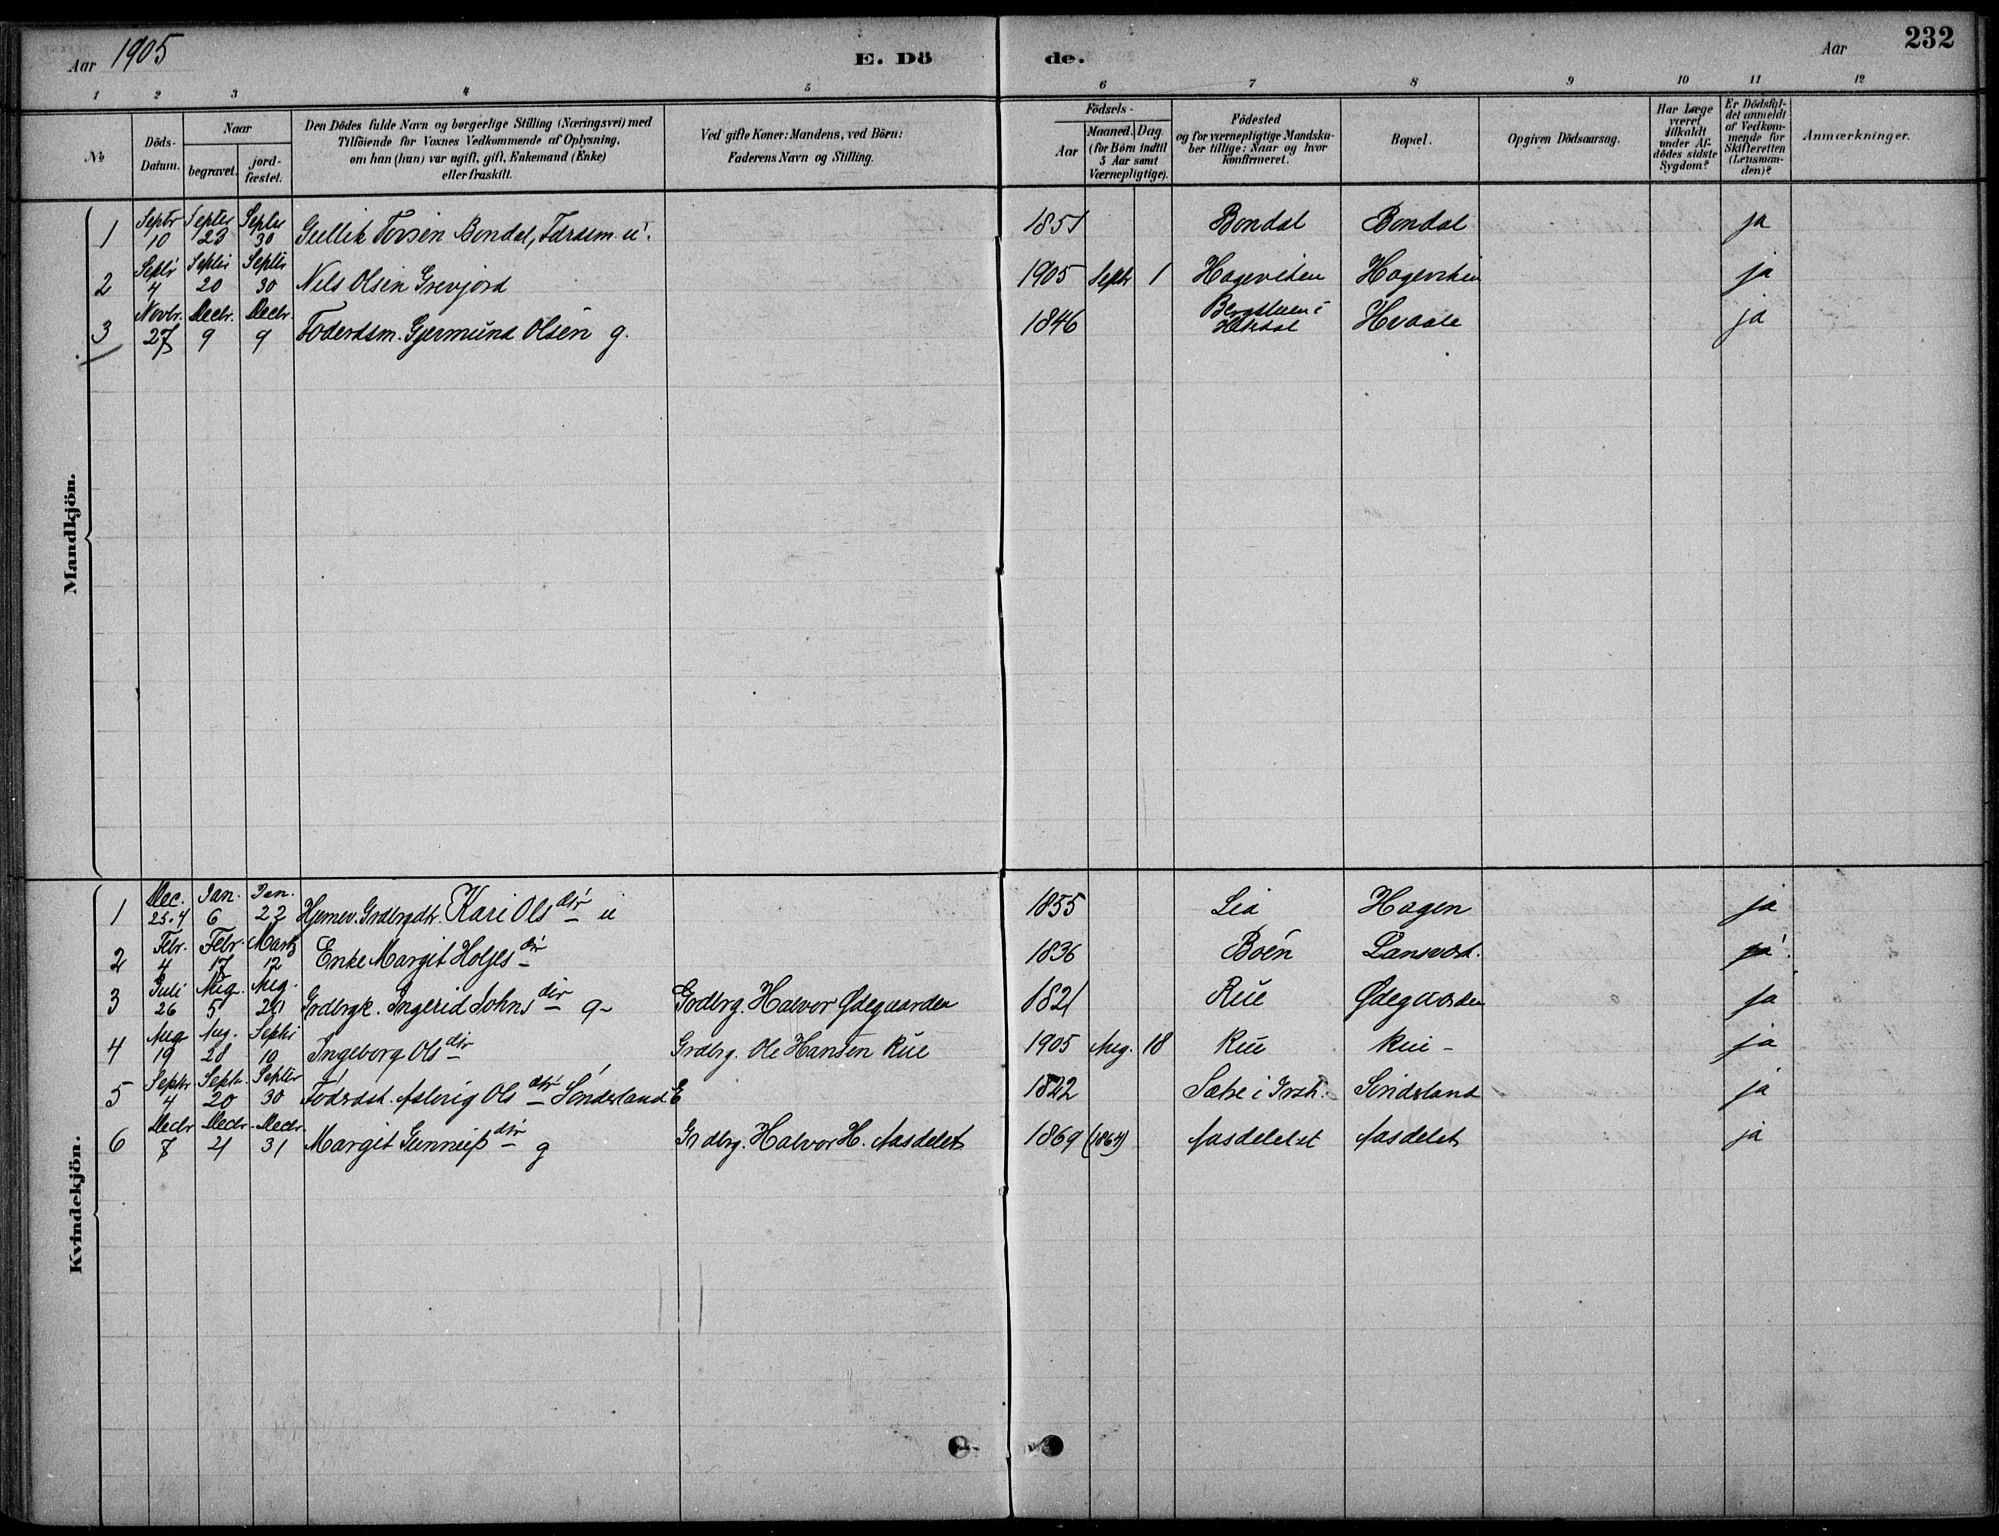 Aar 1905 E. Dö de. Aar 232
1 2 3 4 5 6 7 8 9 10 11 12
No Döds-Datum. Naar begravet. jord-fæstet. Den Dödes fulde Navn og borgerlige Stilling (Næringsvei) med Tilföiende for Voxnes Vedkommende af Oplysning, om han (hun) var ugift, gift, Enkemand (Enke) eller fraskilt. Ved gifte Koner: Mandens, ved Börn: Faderens Navn og Stilling. Födsels- Aar Maaned. Dag. (for Börn indtil 5 Aar samt Værnepligtige). Födested og for værnepligtige Mandskaber tillige: Naar og hvor Konfirmeret. Bopæl. Opgiven Dödsaarsag. Har Læge været tilkaldt under Afdödes sidste Sygdom? Er Dödsfaldet anmeldt af Vedkommende for Skifteretten (Lensmanden)? Anmærkninger.
Mandkjön.
1 Septr 10 Septer 23 Septer 30 Gullik Torsen Bondal, u. 1851 Bondal Bondal ja
2 Septr 4 Septr 20 Septr 30 Nils Olsen Grevjord 1905 Septr 1 Hageviken Hageviken ja
3 Novbr. 27 Decbr. 9 Decbr. 9 Foderdsm. Gjermund Olsen g. 1846 i Hvaale ja
Kvindekjön.
1 Dec. 25.4 Jan. 6 Jan. 22 Kari Olsdtr u 1855 Lia Hagen ja
2 Febr. 4 Febr. 17 Marts 12 Enke Margit Holjesdtr 1836 Boën ja
3 Juli 26 Aug. 5 Aug. 20 Grdbrgk. Ingerid Johnsdtr g Grdbrg. Halvor Ødegaarden 1821 Rue Ødegaarden ja
4 Aug 19 Aug. 28 Septr 10 Ingeborg Olsdtr Grdbrg. Ole Hansen Rue 1905 Aug. 18 Rue Rue ja
5 Septr 4 Septr. 20 Septer 30 Aslaug Olsdtr Sønderland E 1822 i Sønderland ja
6 Decbr 7 Decbr 21 Decbr. 31 Margit Gunneiksdtr g Grdbrg. Halvor H. Aasdelet 1869 (1864) Aasdelet Aasdelet ja